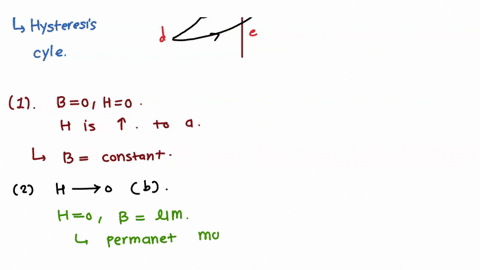 ↳ Hysteresis
cyle.
d
e
(1). B=0, H=0.
H is ↑. to a.
↳ B = constant.
(2) H → 0 (b).
H=0, B = μM.
↳ permanet mo